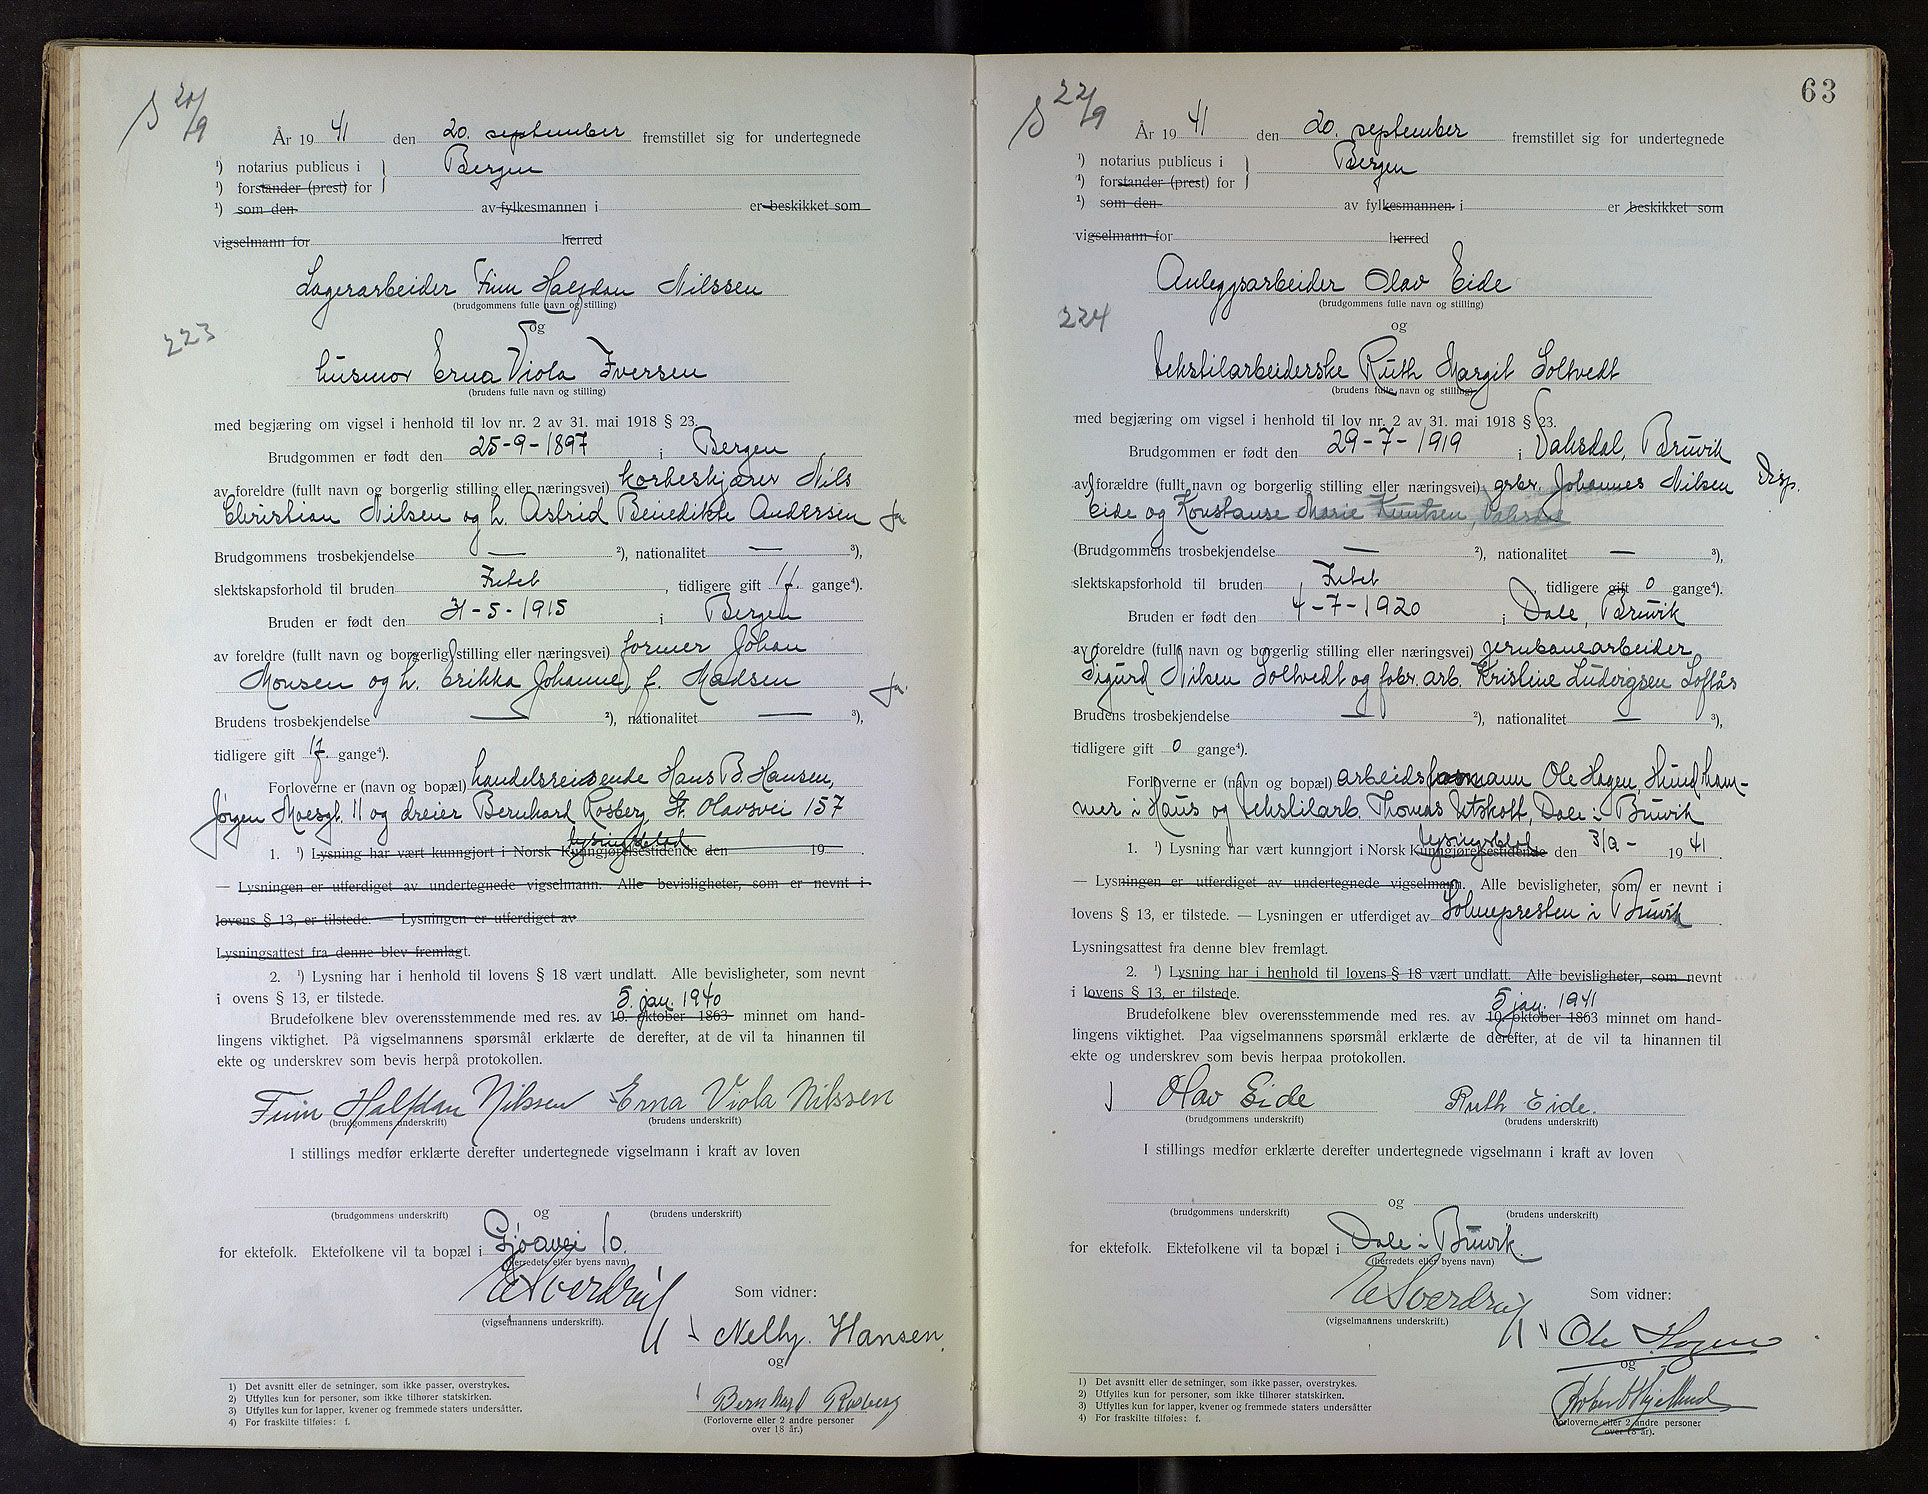 20/9
År 1941 den 20. september fremstillet sig for undertegnede
¹) notarius publicus i Bergen
¹) forstander (prest) for
¹) som den av fylkesmannen i er beskikket som
vigselmann for herred
Lagerarbeider Finn Halfdan Nilssen
(brudgommens fulle navn og stilling)
og
223
husmor Erna Viola Iversen
(brudens fulle navn og stilling)
med begjæring om vigsel i henhold til lov nr. 2 av 31. mai 1918 § 23.
Brudgommen er født den 25-9-1897 i Bergen
av foreldre (fullt navn og borgerlig stilling eller næringsvei) korbeskjærer Nils
Christian Nilsen og h. Astrid Benedikte Andersen ja
Brudgommens trosbekjendelse — ²), nationalitet — ³),
slektskapsforhold til bruden Intet, tidligere gift 1 f. gange⁴).
Bruden er født den 31-5-1915 i Bergen
av foreldre (fullt navn og borgerlig stilling eller næringsvei) former Johan
Monsen og h. Erikka Johanne, f. Madsen ja.
Brudens trosbekjendelse — ²), nationalitet — ³),
tidligere gift 1 f. gange⁴).
Forloverne er (navn og bopæl) handelsreisende Hans B. Hansen,
Jørgen Moesgt. 11 og dreier Bernhard Rosberg, St. Olavsvei 157
lysingsblad
1. ¹) Lysning har vært kunngjort i Norsk Kunngjørelsestidende den 19
— Lysningen er utferdiget av undertegnede vigselmann. Alle bevisligheter, som er nevnt i
lovens § 13, er tilstede. — Lysningen er utferdiget av
Lysningsattest fra denne blev fremlagt.
2. ¹) Lysning har i henhold til lovens § 18 vært undlatt. Alle bevisligheter, som nevnt
i ovens § 13, er tilstede.
5. jan. 1940
Brudefolkene blev overensstemmende med res. av 10. oktober 1863 minnet om hand-
lingens viktighet. På vigselmannens spørsmål erklærte de derefter, at de vil ta hinannen til
ekte og underskrev som bevis herpå protokollen.
Finn Halfdan Nilssen Erna Viola Nilssen
(brudgommens underskrift) (brudens underskrift)
I stillings medfør erklærte derefter undertegnede vigselmann i kraft av loven
og
(brudgommens underskrift) (brudens underskrift)
for ektefolk. Ektefolkene vil ta bopæl i Gjøavei 10.
(herredets eller byens navn)
E Sverdrup
(vigselmannens underskrift).
Som vidner:
Nelly. Hansen.
og
Bernhard Rosberg
(Forloverne eller 2 andre personer
over 18 år.)
1) Det avsnitt eller de setninger, som ikke passer, overstrykes.
2) Utfylles kun for personer, som ikke tilhører statskirken.
3) Utfylles kun for lapper, kvener og fremmede staters undersåtter.
4) For fraskilte tilføies: f.
63
22/9
År 1941 den 20. september fremstillet sig for undertegnede
¹) notarius publicus i Bergen
¹) forstander (prest) for
¹) som den av fylkesmannen i er beskikket som
vigselmann for herred
Anleggsarbeider Olav Eide
(brudgommens fulle navn og stilling)
224
og
tekstilarbeiderske Ruth Margit Soltvedt
(brudens fulle navn og stilling)
med begjæring om vigsel i henhold til lov nr. 2 av 31. mai 1918 § 23.
Brudgommen er født den 29-7-1919 i Vaksdal, Bruvik
av forældre (fullt navn og borgerlig stilling eller næringsvei) grbr. Johannes Nilsen Disp.
Eide og Konstanse Marie Knutsen, Vaksdal
(Brudgommens trosbekjendelse — ²), nationalitet — ³),
slektskapsforhold til bruden Intet, tidligere gift 0 gange⁴).
Bruden er født den 4-7-1920 i Dale, Bruvik
av foreldre (fullt navn og borgerlig stilling eller næringsvei) jernbanearbeider
Sigurd Nilsen Soltvedt og fabr. arb. Kristine Ludvigsen Loftås
Brudens trosbekjendelse — ²), nationalitet — ³),
tidligere gift 0 gange⁴).
Forloverne er (navn og bopæl) arbeidsformann Ole Hagen, Hundham-
mer i Haus og tekstilarb. Thomas Utskott, Dale i Bruvik
lysingsblad
1. ¹) Lysning har vært kunngjort i Norsk Kunngjørelsestidende den 3/9- 1941.
— Lysningen er utferdiget av undertegnede vigselmann. Alle bevisligheter, som er nevnt i
lovens § 13, er tilstede. — Lysningen er utferdiget av Soknepresten i Bruvik
Lysningsattest fra denne blev fremlagt.
2. ¹) Lysning har i henhold til lovens § 18 vært undlatt. Alle bevisligheter, som nevnt
i lovens § 13, er tilstede.
5 jan. 1941
Brudefolkene blev overensstemmende med res. av 10. oktober 1863 minnet om hand-
lingens viktighet. Paa vigselmannens spørsmål erklærte de derefter, at de vil ta hinannen til
ekte og underskrev som bevis herpaa protokollen.
Olav Eide Ruth Eide.
(brudgommens underskrift) (brudens underskrift)
I stillings medfør erklærte derefter undertegnede vigselmann i kraft av loven
og
(brudgommens underskrift) (brudens underskrift)
for ektefolk. Ektefolkene vil ta bopæl i Dale i Bruvik.
(herredets eller byens navn)
E Sverdrup
(vigselmannens underskrift.)
Som vidner:
Ole Hagen
og
(forloverne eller 2 andre personer
over 18 år).
1) Det avsnitt eller de setninger, som ikke passer, overstrykes.
2) Utfylles kun for personer, som ikke tilhører statskirken.
3) Utfylles kun for lapper, kvener og fremmede staters undersåtter
4) For fraskilte tilføies: f.